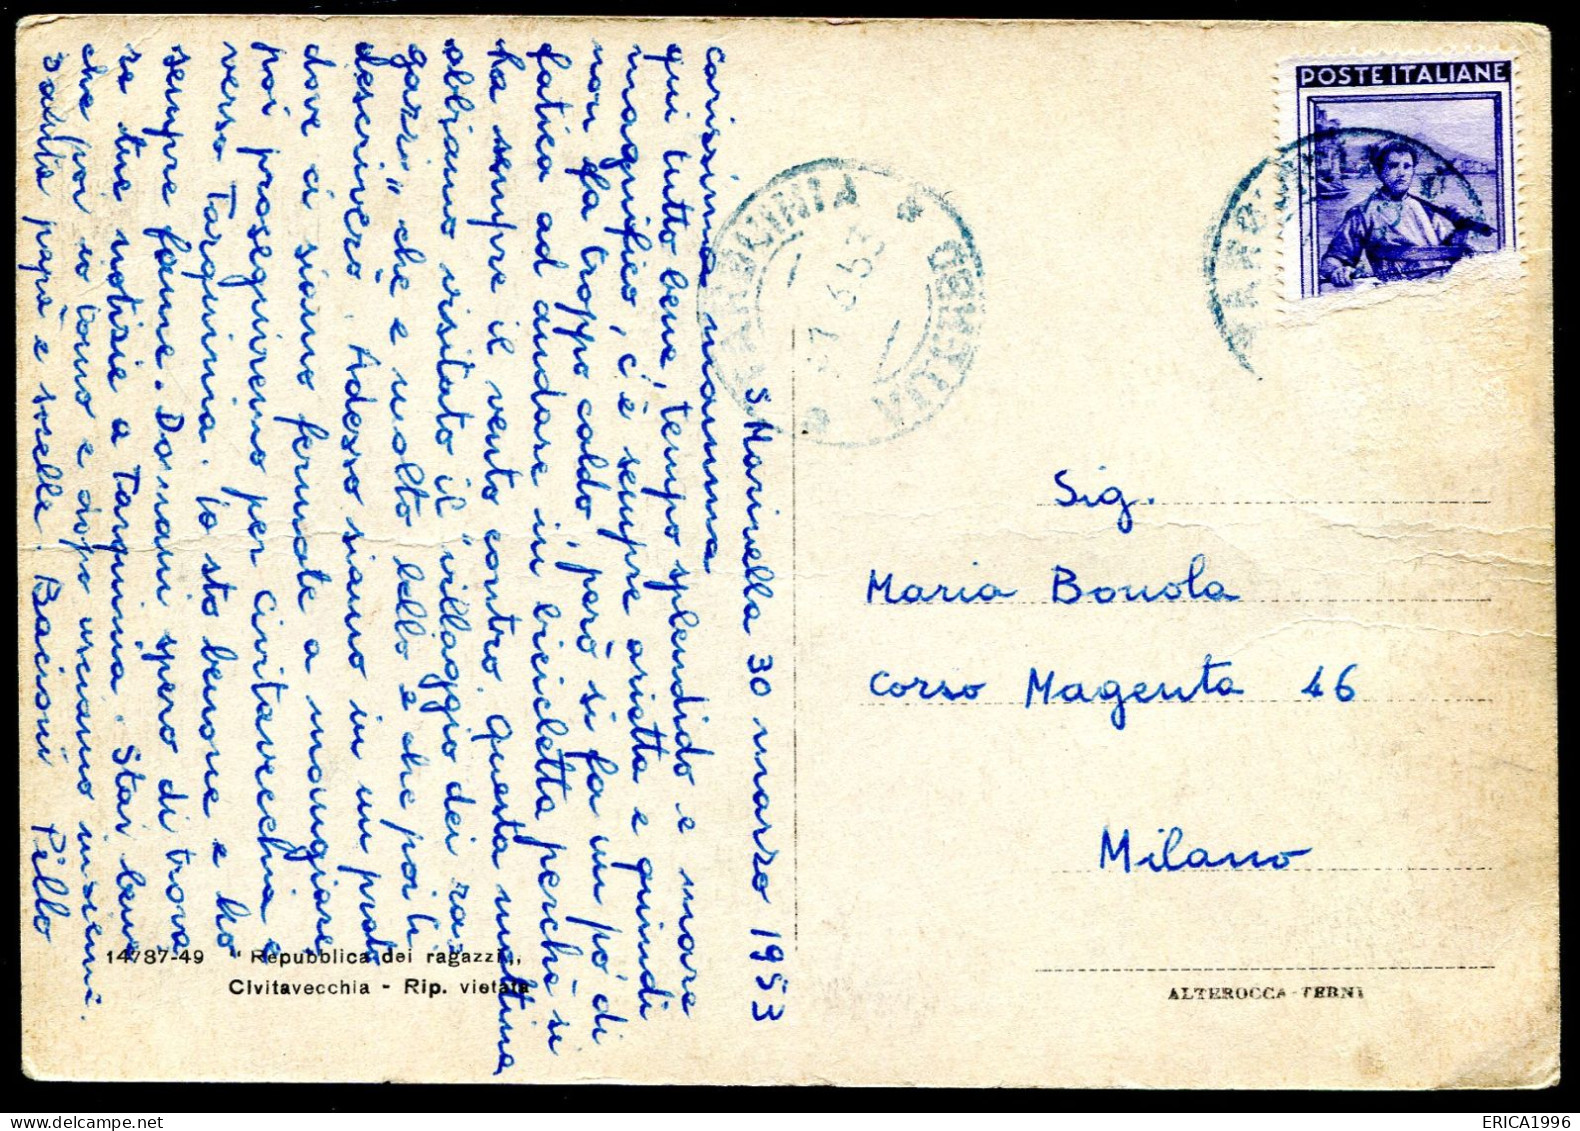 S. Marinella 30 marzo 1953
carissima mamma
qui tutto bene, tempo splendido e mare
magnifico, c'è sempre arietta e quindi
non fa troppo caldo, però si fa un pò di
fatica ad andare in bicicletta perchè si
ha sempre il vento contro. Questa mattina
abbiamo visitato il "villaggio dei ra
gazzi" che e molto bello e che poi ti
descriverò. Adesso siamo in un prato
dove ci siamo fermate a mangiare
poi proseguiremo per Civitavecchia e
verso Tarquinia. io sto benone e ho
sempre fame. Domani spero di trova
re tue notizie a Tarquinia. Stai bene
che poi io torno e dopo usciamo insieme.
Saluta papà e sorelle. Bacioni Pillo
14787-49 "Repubblica dei ragazzi,,
Civitavecchia - Rip. vietata
POSTE ITALIANE
Sig.
Maria Bonola
Corso Magenta 46
Milano
ALTEROCCA-TERNI
ERICA1996